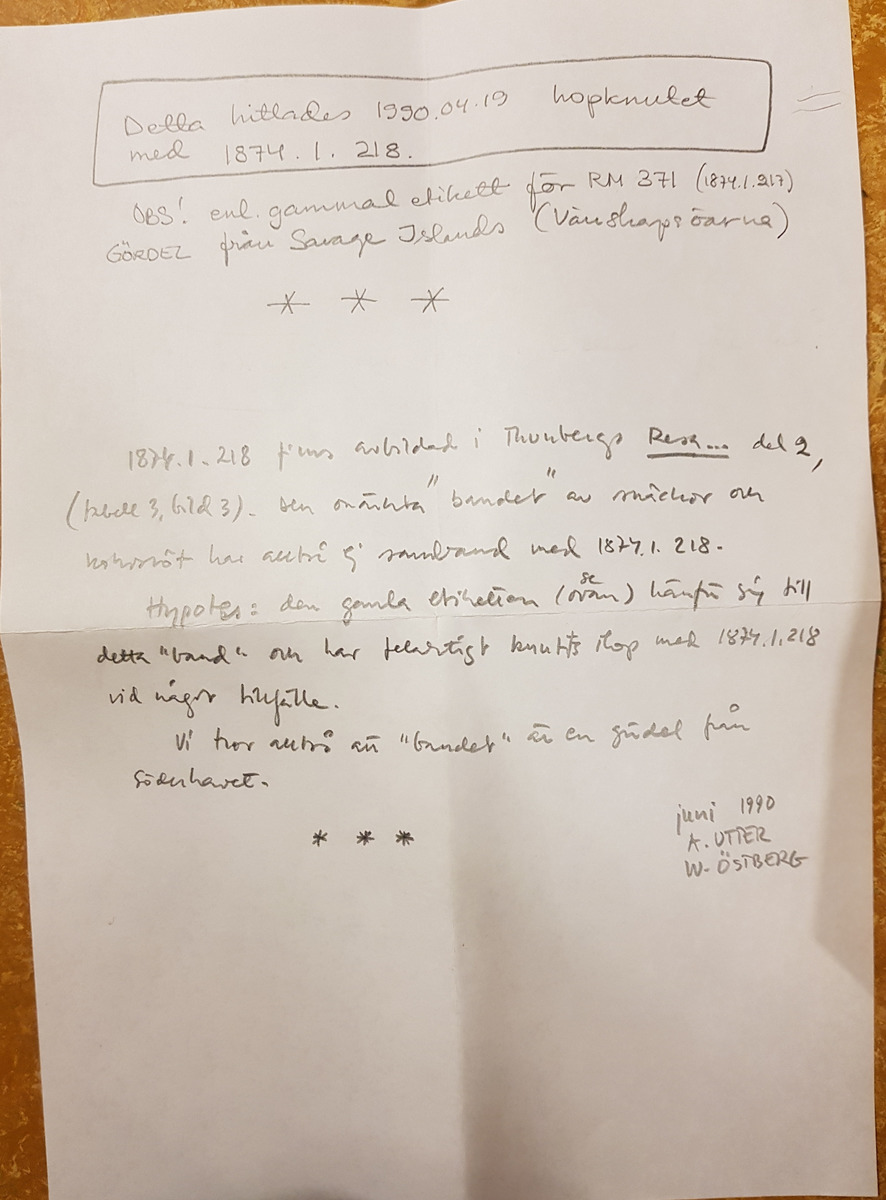 Detta hittades 1990.04.19 hopknutet
med 1874.1.218.
OBS! enl. gammal etikett för RM 371 (1874.1.217)
GÖRDEL från Savage Islands (Vänskapsöarna)
* * *
1874.1.218 finns avbildad i Thunbergs Resa... del 2,
(tabell 3, bild 3). Den omärkta "bandet" av snäckor och
kokosnöt har alltså ej samband med 1874.1.218.
Hypotes: den gamla etiketten (se ovan) hänför sig till
detta "band" och har felaktigt knutits ihop med 1874.1.218
vid något tillfälle.
Vi tror alltså att "bandet" är en gördel från
Söderhavet.
* * *
juni 1990
A. UTTER
W. ÖSTBERG